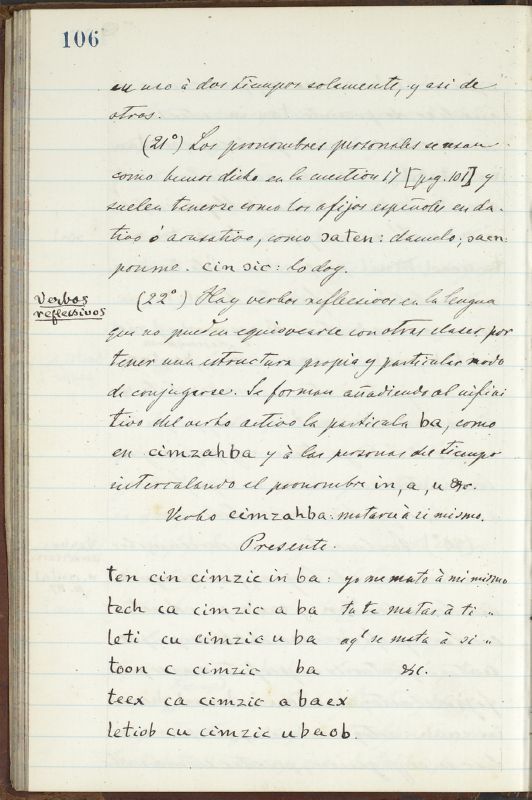 106
en uso à dos tiempos solamente, y asi de
otros.
(21º) Los pronombres personales se usan
como hemos dicho en la cuestion 17 [pag. 101] y
suelen tenerse como los afijos españoles en da-
tivo ó acusativo, como ɔaten: damelo; ɔaen:
ponme. cin ɔic: lo doy.
Verbos
reflecsivos
(22º) Hay verbos reflecsivos en la lengua
que no pueden equivocarse con otras clases por
tener una estructura propia y particular modo
de conjugarse. Se forman añadiendo al infini
tivo del verbo activo la particula ba, como
en cimzahba y à las personas del tiempo
intercalando el pronombre in, a, u &c.
Verbo cimzahba: matarse à si mismo.
Presente.
ten cin cimzic in ba: yo me mato à mi mismo
tech ca cimzic a ba tu te matas à ti "
leti cu cimzic u ba aql se mata à si "
toon c cimzic ba &c.
teex ca cimzic a baex
letiob cu cimzic u baob.